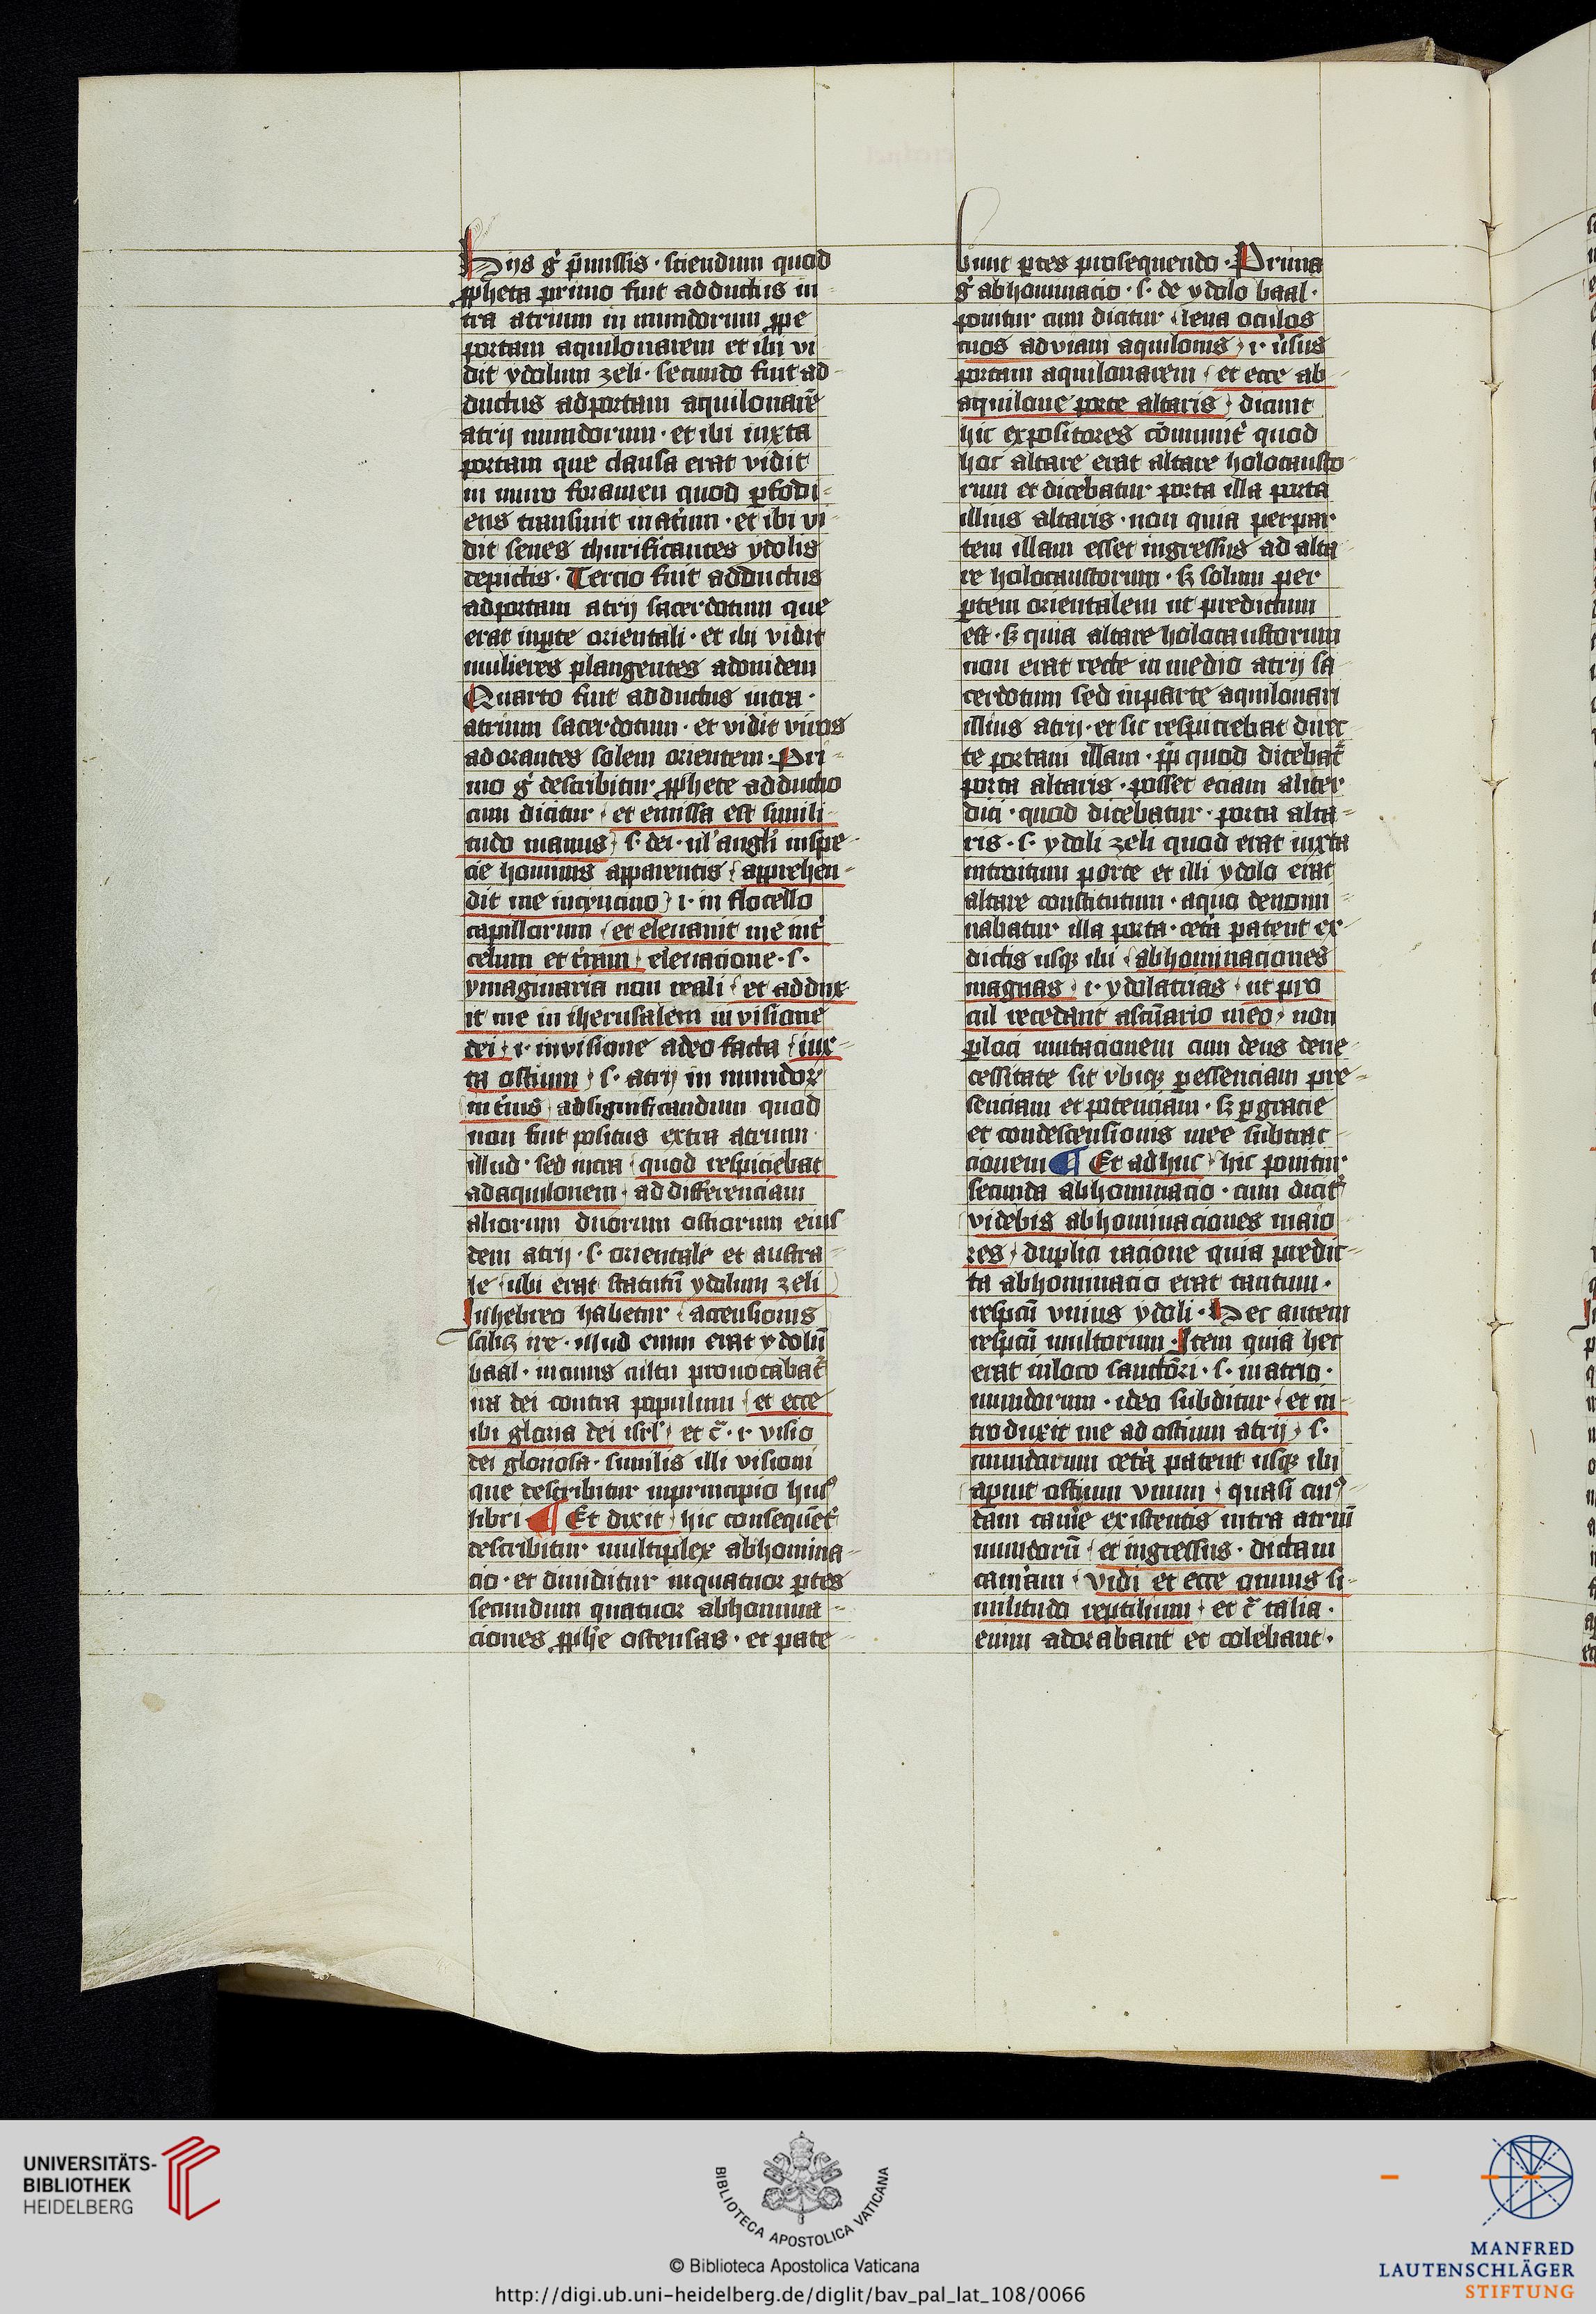 Hijs g̊ p̄missis · sciendum quod
ꝓpheta primo fuit adductus in
tra atrium in mundorum ꝓpe
portam aquilonarem et ibi vi
dit ydolum zeli · secundo fuit ad
ductus ad portam aquilonarē
atrij mundorum · et ibi iuxta
portam que clausa erat vidit
in muro foramen quod ꝑfodi
ens transiuit in atrium · et ibi vi
dit senes thurificantes ydolis
depictis · Tercio fuit adductus
ad portam atrij sacerdotum que
erat in ꝑte orientali · et ibi vidit
mulieres plangentes adonidem
Quarto fuit adductus intra ·
atrium sacerdotum · et vidit viros
adorantes solem orientem · Pri
mo g̊ describitur ꝓphete adductio
cum dicitur et emissa est simili
tudo manus s · dei · ul' angli in spe
cie hominis apparentis apprehen
dit me in cincino i · in flocello
capillorum et eleuauit me int̉
celum et t̉ram eleuacione · s ·
ymaginaria non reali et addux
it me in iherusalem in visione
dei i · in visione a deo facta iux
ta ostium s · atrij in mundoꝝ
int̉ius ad significandum quod
non fuit positus extra atrium
illud · sed intra quod respiciebat
ad aquilonem ad differenciam
aliorum duorum ostiorum eius
dem atrij · s · orientale et austra
le ubi erat statutū ydolum zeli
In hebreo habetur accensionis
scilicꝫ ire · illud enim erat ydolū
baal · in cuius cultu prouocabat̉
ira dei contra populum et ecce
ibi gloria dei isrl' et c̄ · i · visio
dei gloriosa · similis illi visioni
que describitur in principio huiꝰ
libri ¶ Et dixit hic consequēt̉
describitur multiplex abhomina
cio · et diuiditur in quatuor ꝑtes
secundum quatuor abhomina
ciones ꝓphe ostensas · et pate
bunt ꝑtes prosequendo · Prima
g̊ abhominacio · s · de ydolo baal ·
ponitur cum dicitur leua oculos
tuos ad viam aquilonis i · u̓sus
portam aquilonarem et ecce ab
aquilone porte altaris dicunt
hic expositores cōmunit̉ quod
hoc altare erat altare holocausto
rum et dicebatur porta illa porta
illius altaris · non quia per par
tem illam esset ingressus ad alta
re holocaustorum · sꝫ solum per
ꝑtem orientalem ut predictum
est · sꝫ quia altare holocaustorum
non erat recte in medio atrij sa
cerdotum sed in parte aquilonari
illius atrij · et sic respiciebat direc
te portam illam · ꝓp̄ quod dicebat̉
porta altaris · posset eciam aliter
dici · quod dicebatur · porta alta
ris · s · ydoli zeli quod erat iuxta
introitum porte et illi ydolo erat
altare constitutum · a quo denomi
nabatur illa porta · cet̉a patent ex
dictis usqꝫ ibi abhominaciones
magnas i · ydolatrias ut pro
cul recedant a sc̄uario meo non
ꝑ loci mutacionem cum deus de ne
cessitate sit vbiqꝫ ꝑ essenciam pre
senciam et potenciam · sꝫ ꝑ gracie
et condescensionis mee subtrac
cionem ¶ Et ad huc hic ponitur
secunda abhominacio · cum dicit̉
videbis abhominaciones maio
res duplici racione quia predic
ta abhominacio erat tantum ·
respcū vnius ydoli · Hec autem
respcū multorum · Item quia hec
erat in loco sanctōri · s · in atrio ·
mundorum · ideo subditur et in
troduxit me ad ostium atrij s ·
mundorum cet̉a patent usqꝫ ibi
aperuit ostium vnum quasi cuiꝰ
dam cam̉e existentis intra atriū
mundorū et ingressus · dictam
cam̉am vidi et ecce omnis si
militudo reptilium et c̄ talia ·
enim adorabant et colebant ·
UNIVERSITÄTS-
BIBLIOTHEK
HEIDELBERG
BIBLIOTECA APOSTOLICA VATICANA
© Biblioteca Apostolica Vaticana
http://digi.ub.uni-heidelberg.de/diglit/bav_pal_lat_108/0066
MANFRED
LAUTENSCHLÄGER
STIFTUNG